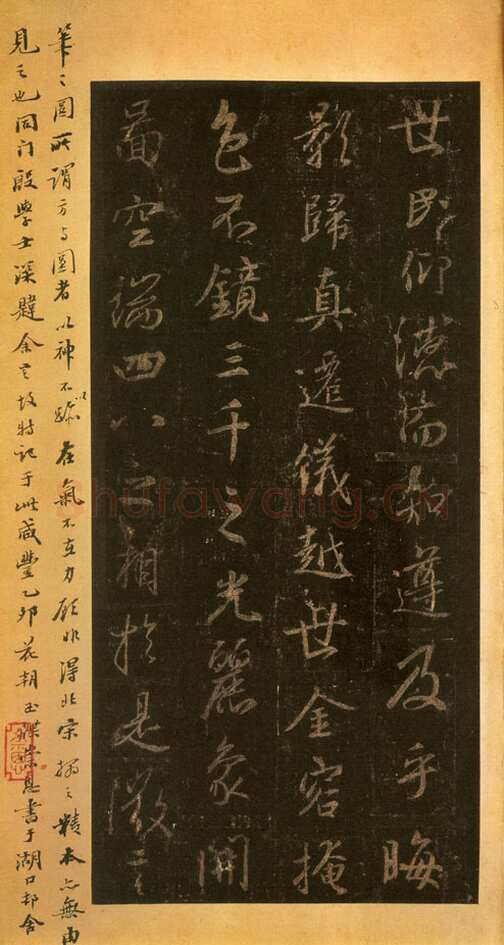 世民仰德而知遵及乎晦
影歸真遷儀越世金容掩
色不鏡三千之光麗象開
圖空端四八之相於是微言
筆〻圓所謂方與圓者以神不以跡在氣不在力顧非得北宋搨之精本亦無由
見之也同門殷學士深韙余言故特記于此咸豐乙卯花朝玉牒崇恩書于湖口邨舍
shufawang.cn